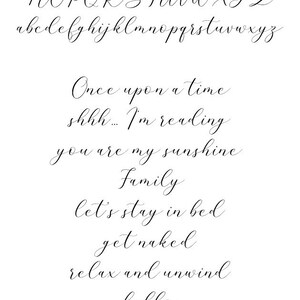 abcdefghijklmnopqrstuvwxyz
Once upon a time
shhh... I'm reading
you are my sunshine
Family
let's stay in bed
get naked
relax and unwind